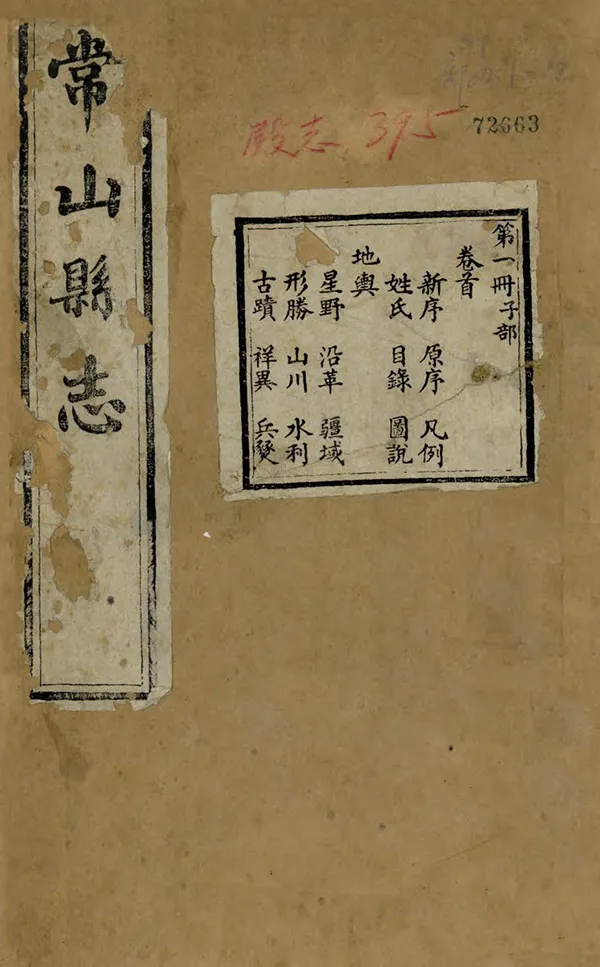 常山縣志
第一冊子部
卷首
新序 原序 凡例
姓氏 目錄 圖說
地輿
星野 沿革 疆域
形勝 山川 水利
古蹟 祥異 兵燹
395
72663